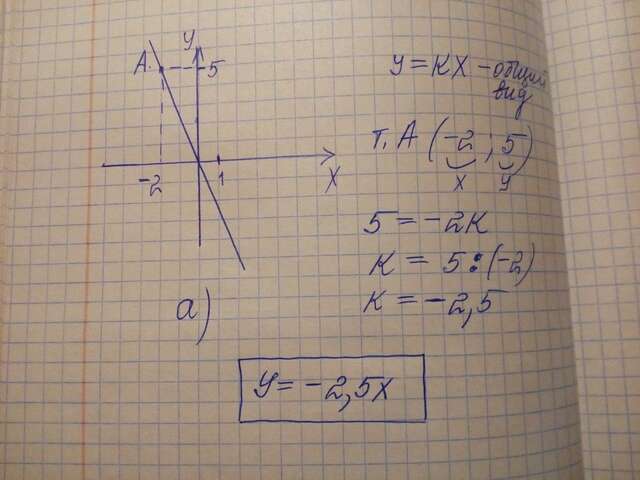 У
А.
5
-2
1
X
а)
У = КХ - общий
вид
т. А (-2 ; 5)
x y
5 = -2К
К = 5 : (-2)
К = -2,5
У = -2,5Х